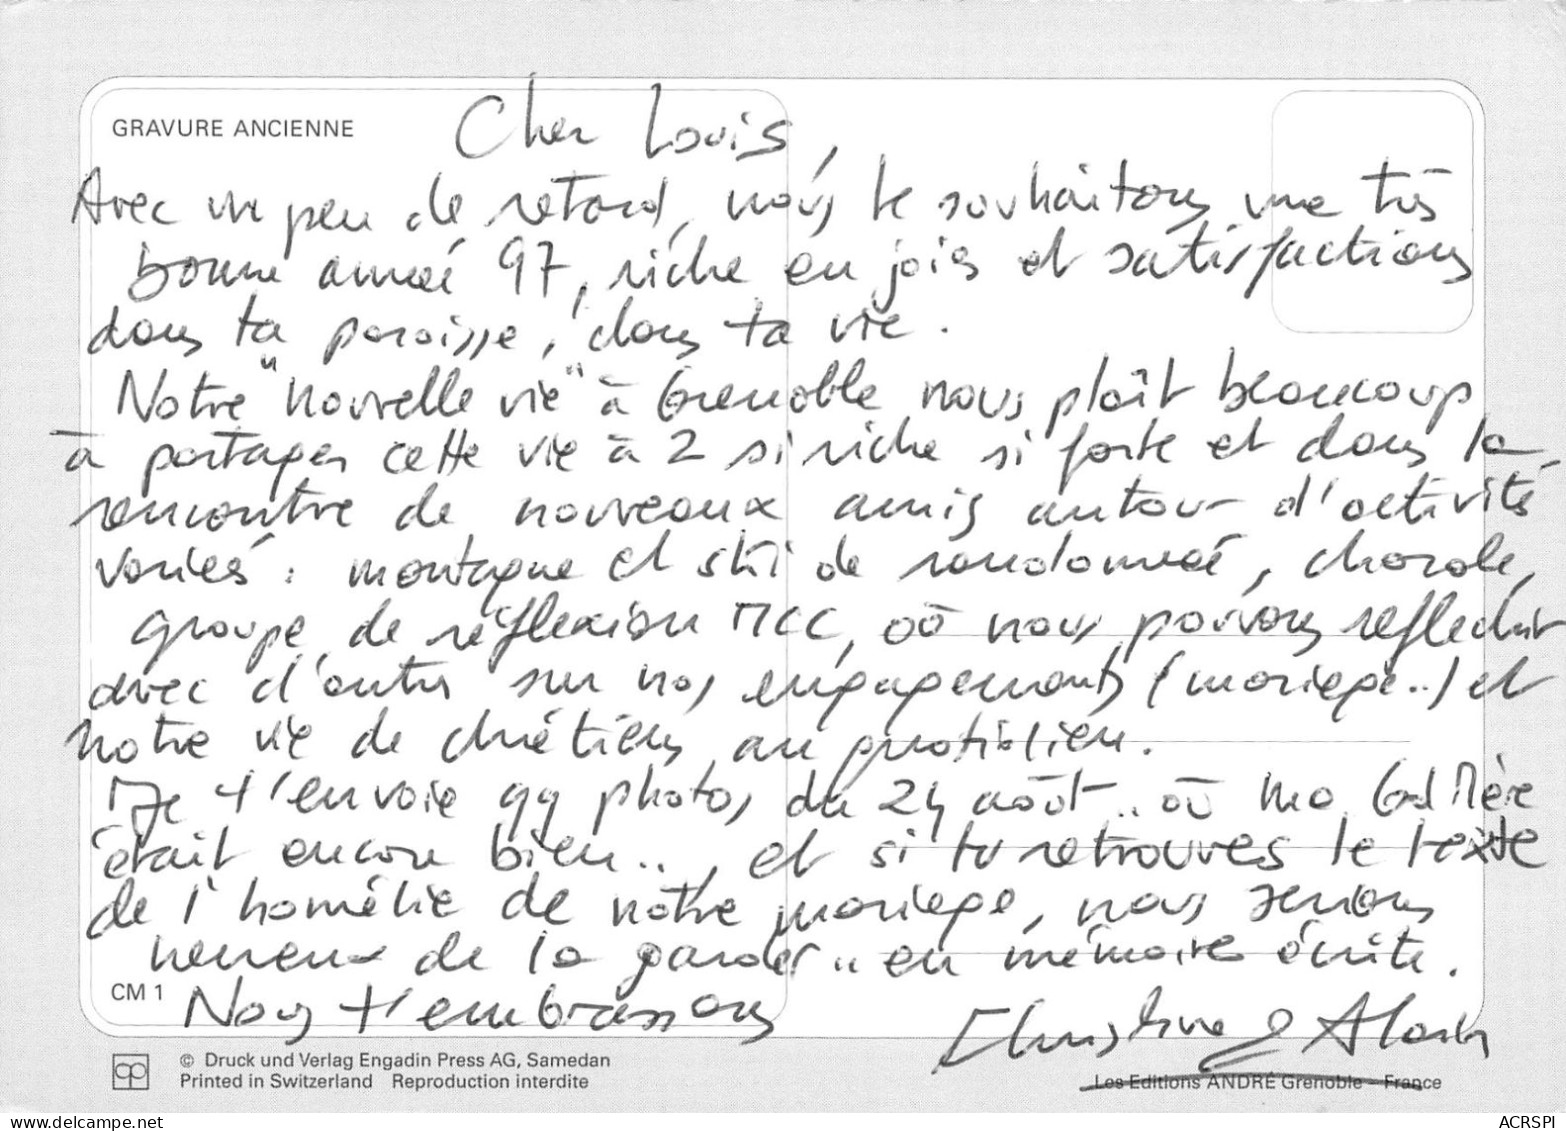 GRAVURE ANCIENNE
Cher Louis,
Avec un peu de retard, nous te souhaitons une très
bonne année 97, riche en joies et satisfactions
dans ta paroisse, dans ta vie.
Notre "nouvelle vie" à Grenoble nous plaît beaucoup
à partager cette vie à 2 si riche si forte et dans la
rencontre de nouveaux amis autour d'activités
variées : montagne et ski de randonnée, chorale,
groupe de réflexion MCC, où nous pouvons réfléchir
avec d'autres sur nos engagements (mariage..) et
notre vie de chrétiens au quotidien.
Je t'envoie qq photos du 24 août.. où ma Gd Mère
était encore bien.., et si tu retrouves le texte
de l'homélie de notre mariage, nous serions
heureux de la garder.. en mémoire écrite.
CM 1
Nous t'embrassons
Christine & Alain
© Druck und Verlag Engadin Press AG, Samedan
Printed in Switzerland Reproduction interdite
Les Editions ANDRÉ Grenoble - France
delcampe.net
ACRSPI